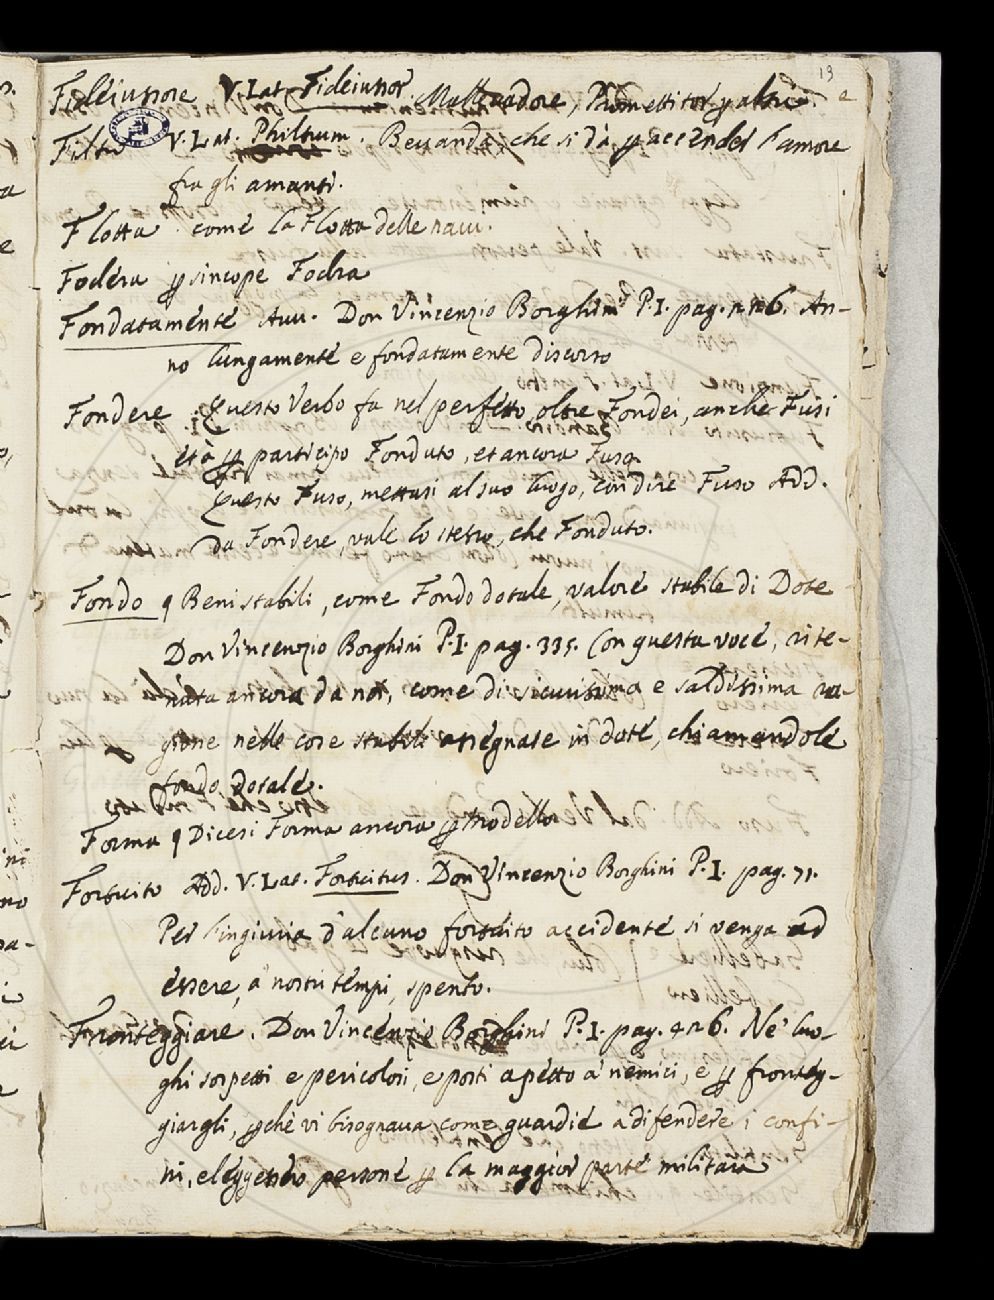 13
Fideiussore V. Lat. Fideiussor. Mallevadore, Promettitor p altri.
Filtro V. Lat. Philtrum. Bevanda, che si dà p accender l'amore
fra gli amanti.
Flotta come la Flotta delle navi.
Fodera p sincope Fodra
Fondatamente Avv. Don Vincenzio Borghini P. I. pag. An-
no lungamente e fondatamente discorso
Fondere Questo Verbo fa nel perfetto, oltre Fondei, anche Fusi
età p participo Fonduto, et ancora Fuso.
Questo Fuso, mettasi al suo luogo, con dire Fuso Add.
da Fondere, vale lo stesso, che Fonduto.
Fondo q Beni stabili, come Fondo dotale, valore stabile di Dote
Don Vincenzio Borghini P. I. pag. 335. Con questa voce, rite-
nuta ancora da noi, come di sicurissima e saldissima ra-
gione nelle cose stabili assegnate in dote, chiamandole
fondo dotale.
Forma q Dicesi Forma ancora p modello
Fortuito Add. V. Lat. Fortuitus. Don Vincenzio Borghini P. I. pag. 71.
Per l'ingiuria d'alcuno fortuito accidente si venga ad
essere, a' nostri tempi, spento.
Fronteggiare. Don Vincenzio Borghini P. I. pag. 426. Ne' luo-
ghi sospetti e pericolosi, e posti apetto a' nemici, e p fronteg-
giargli, pchè vi bisognava come guardie a difendere i confi-
ni, eleggendo persone p la maggior parte militari